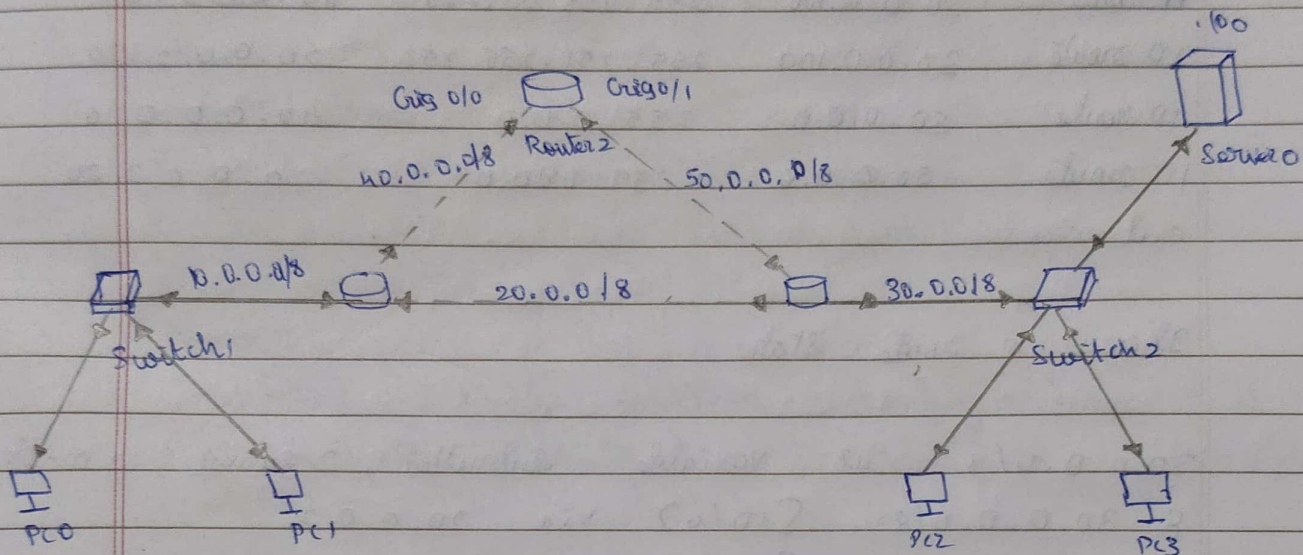 .100
Gig 0/0 Gig0/1
Router2
Server0
40.0.0.0/8 50.0.0.0/8
10.0.0.0/8 20.0.0/8 30.0.0/8
Switch1 Switch2
PC0 PC1 PC2 PC3